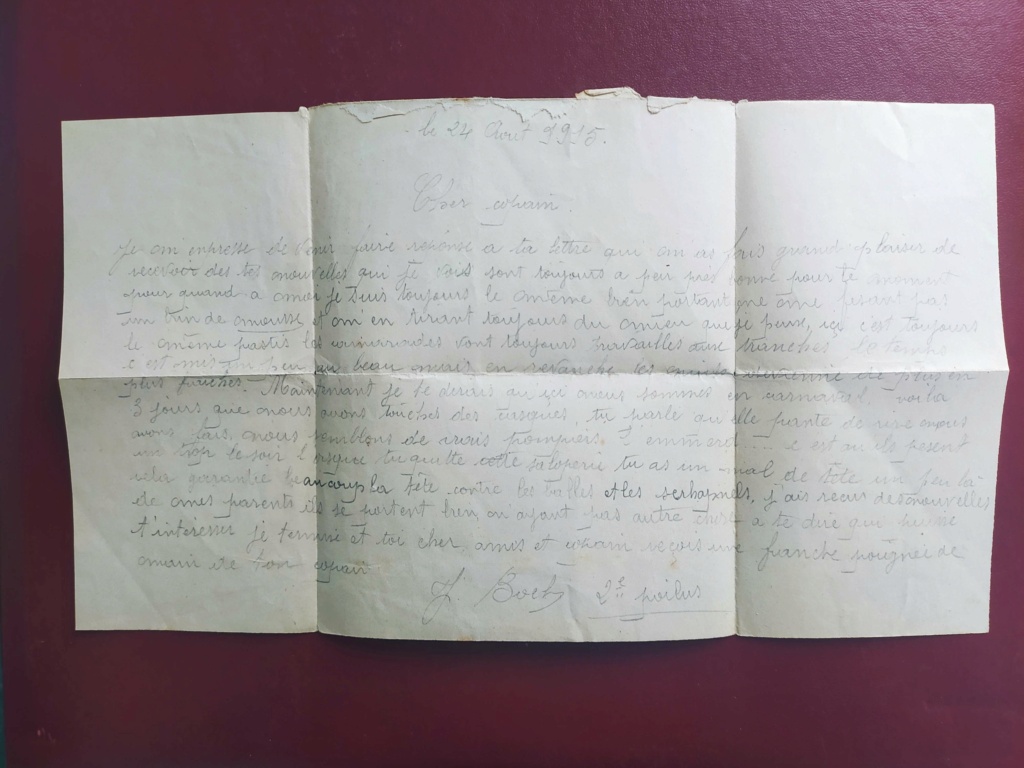 le 24 Aout 1915.
Cher copain
Je m'enpresse de venir faire reponse a ta lettre qui m'as fais grand plaisir de
recevoir des tes nouvelles qui je vois sont toujours a peir près bonne pour te moment
pour quand a moi je suis toujours le même bien portant ne me fesant pas
un brin de mousse, et m'en tirant toujours du mieu que je peux, içi c'est toujours
le même pastis les camarades vont toujours travailles aux tranches le temps
c est mis un peu au beau mais en revanche les devienne de plus en
plus fraiches. Maintenant je te derais qu'içi nous sommes en carnaval, voila
3 jours que nous avons touches des casques, tu parle qu'elle pante de rire nous
avons fais, nous semblons de vrais pompiers, s'emmerd... c est qu'ils pesent
un trop le soir lorsque tu quitte cette saloperie tu as un mal de tête un peu la
cela garantie beaucoup la tête contre les balles et les schrapnels, j'ais recus des nouvelles
de mes parents ils se portent bien, n'ayant pas autre chose a te dire qui puisse
t'interesser je termine et toi cher amis et copain reçois une franche pougnée de
main de ton copain
J. 2e poilus